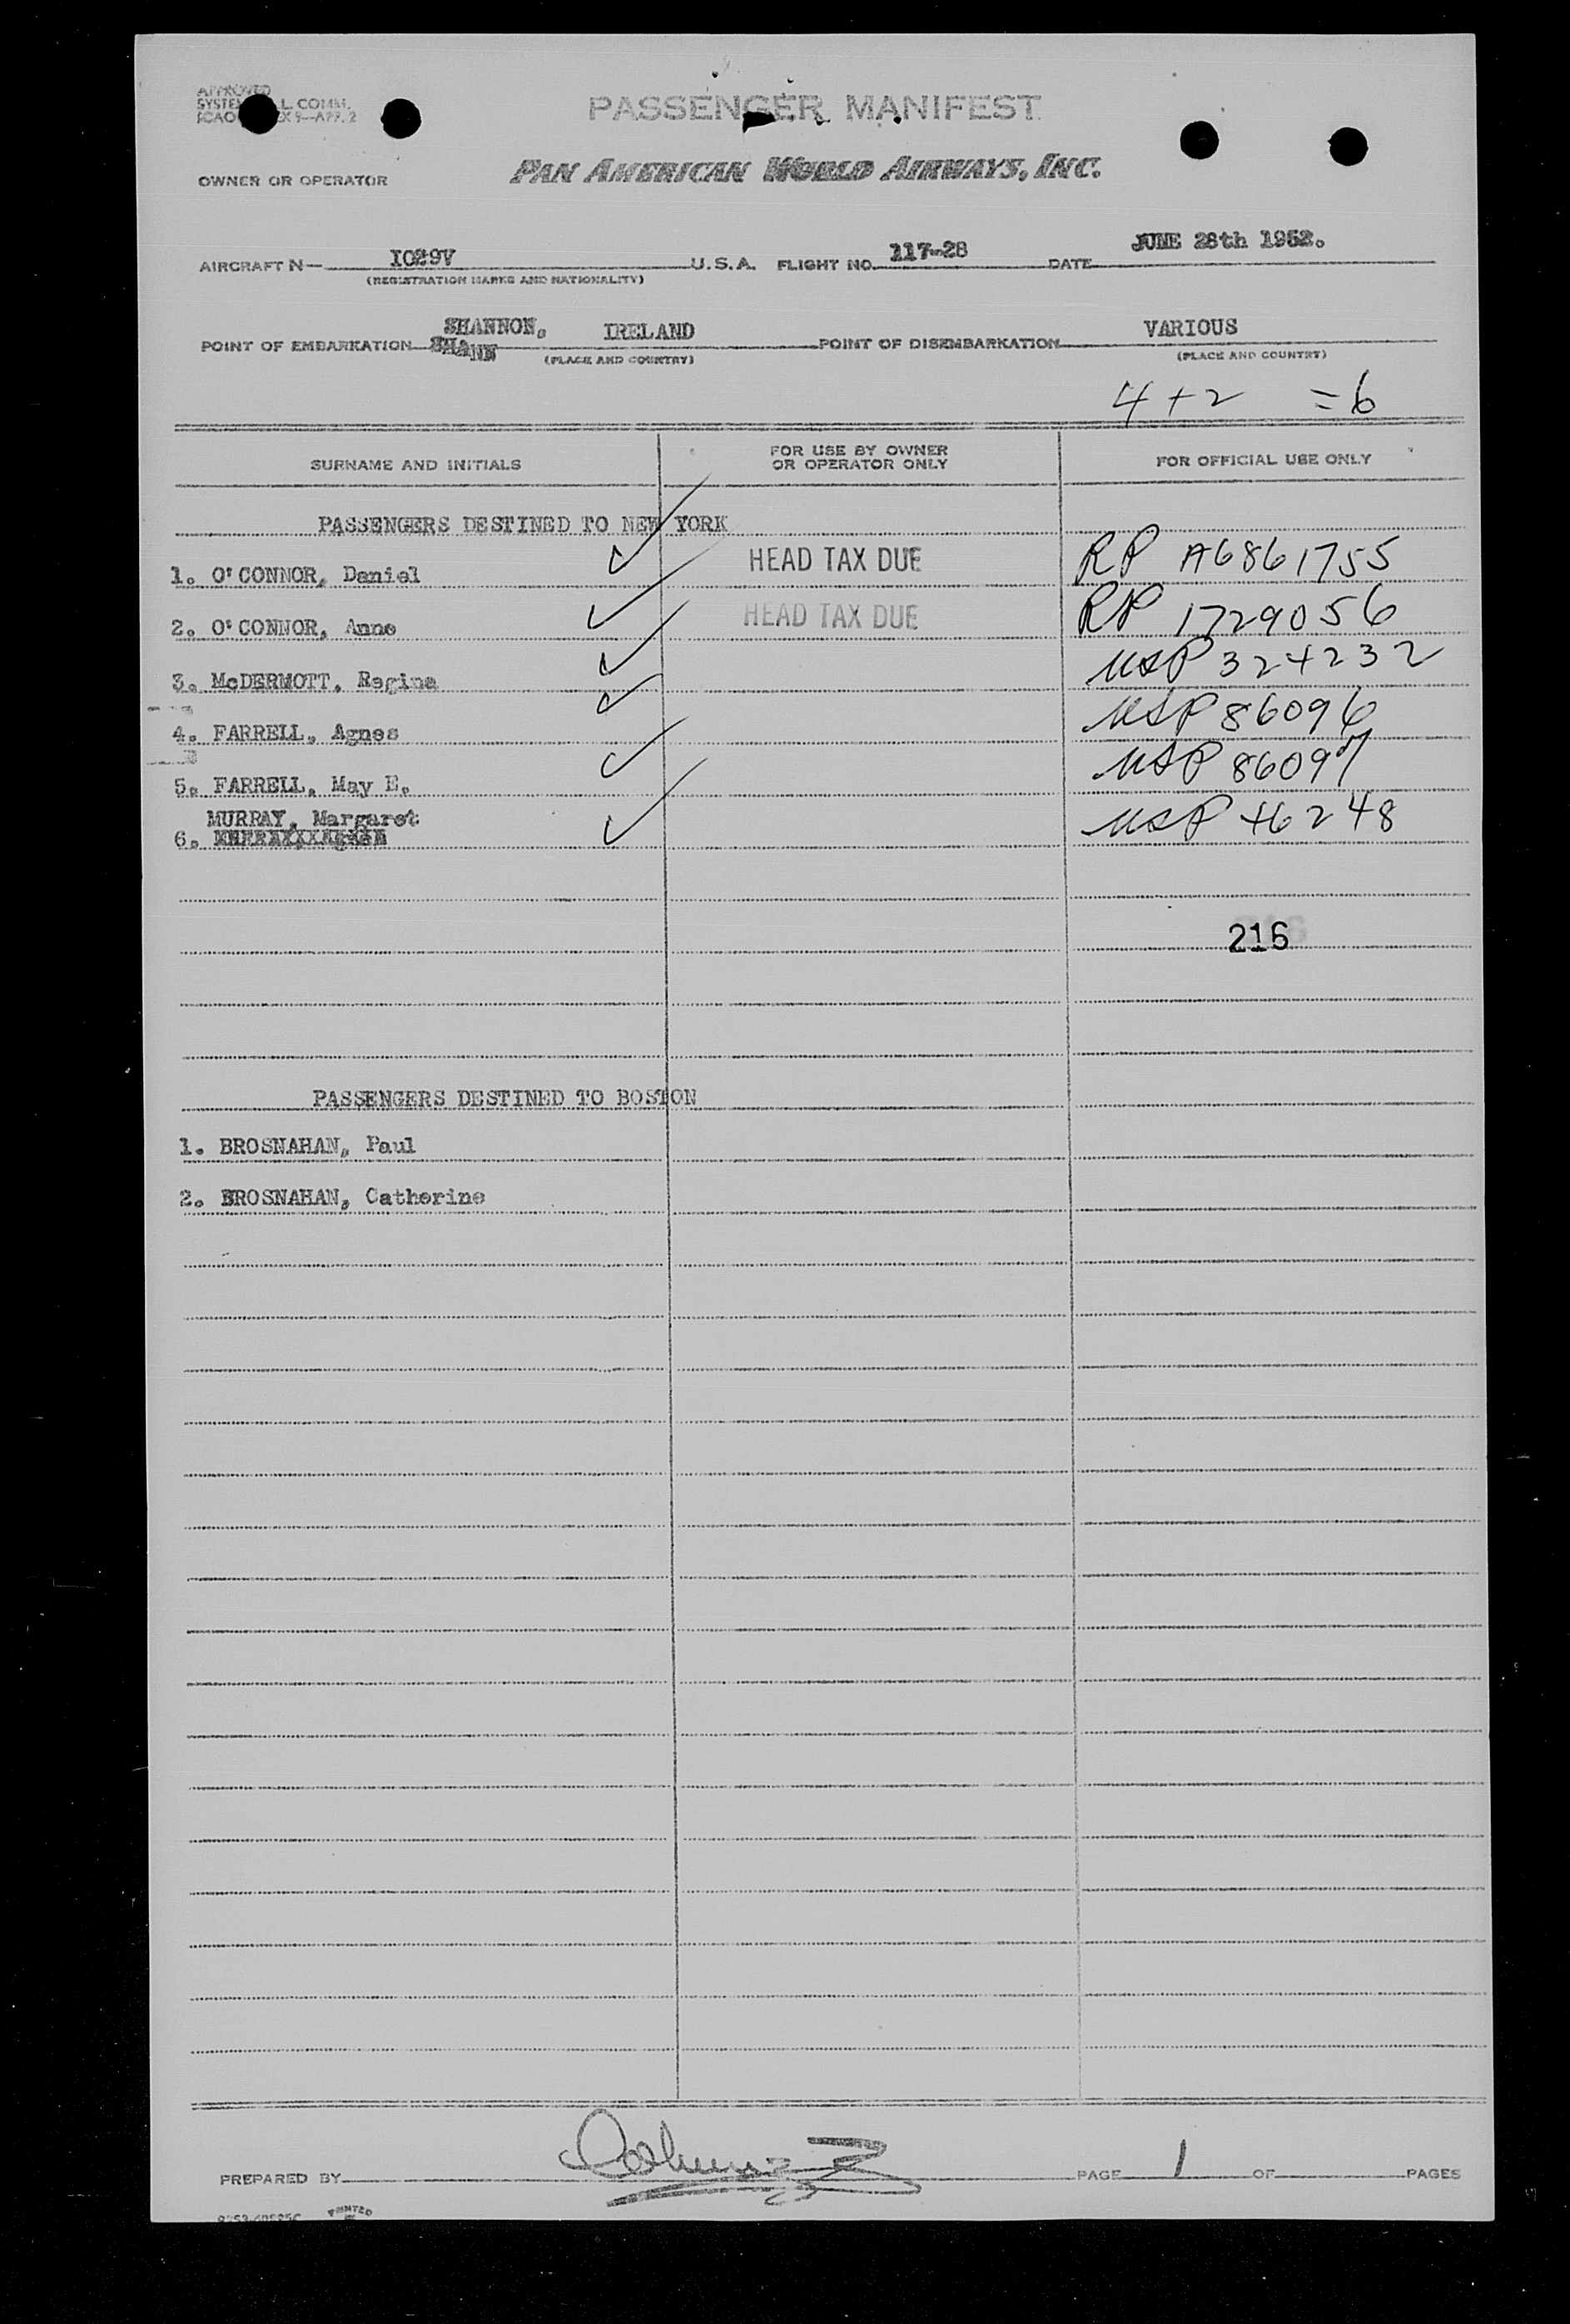 APPROVED
L. COMM.
X 9—APP. 2
PASSENGER MANIFEST
OWNER OR OPERATOR
PAN AMERICAN WORLD AIRWAYS, INC.
AIRCRAFT N— 1029V U.S.A. FLIGHT NO. 117-28 DATE JUNE 28th 1952.
(REGISTRATION MARKS AND NATIONALITY)
SHANNON, IRELAND
POINT OF EMBARKATION SHANN POINT OF DISEMBARKATION VARIOUS
(PLACE AND COUNTRY) (PLACE AND COUNTRY)
4 + 2 = 6
SURNAME AND INITIALS FOR USE BY OWNER OR OPERATOR ONLY FOR OFFICIAL USE ONLY
PASSENGERS DESTINED TO NEW YORK
1. O'CONNOR, Daniel HEAD TAX DUE RP A6861755
2. O'CONNOR, Anne HEAD TAX DUE RP 1729056
3. McDERMOTT, Regina USP 324232
4. FARRELL, Agnes USP 86096
5. FARRELL, May E. USP 86097
MURRAY, Margaret
6. USP 46248
216
PASSENGERS DESTINED TO BOSTON
1. BROSNAHAN, Paul
2. BROSNAHAN, Catherine
PREPARED BY PAGE 1 OF PAGES
PRINTED